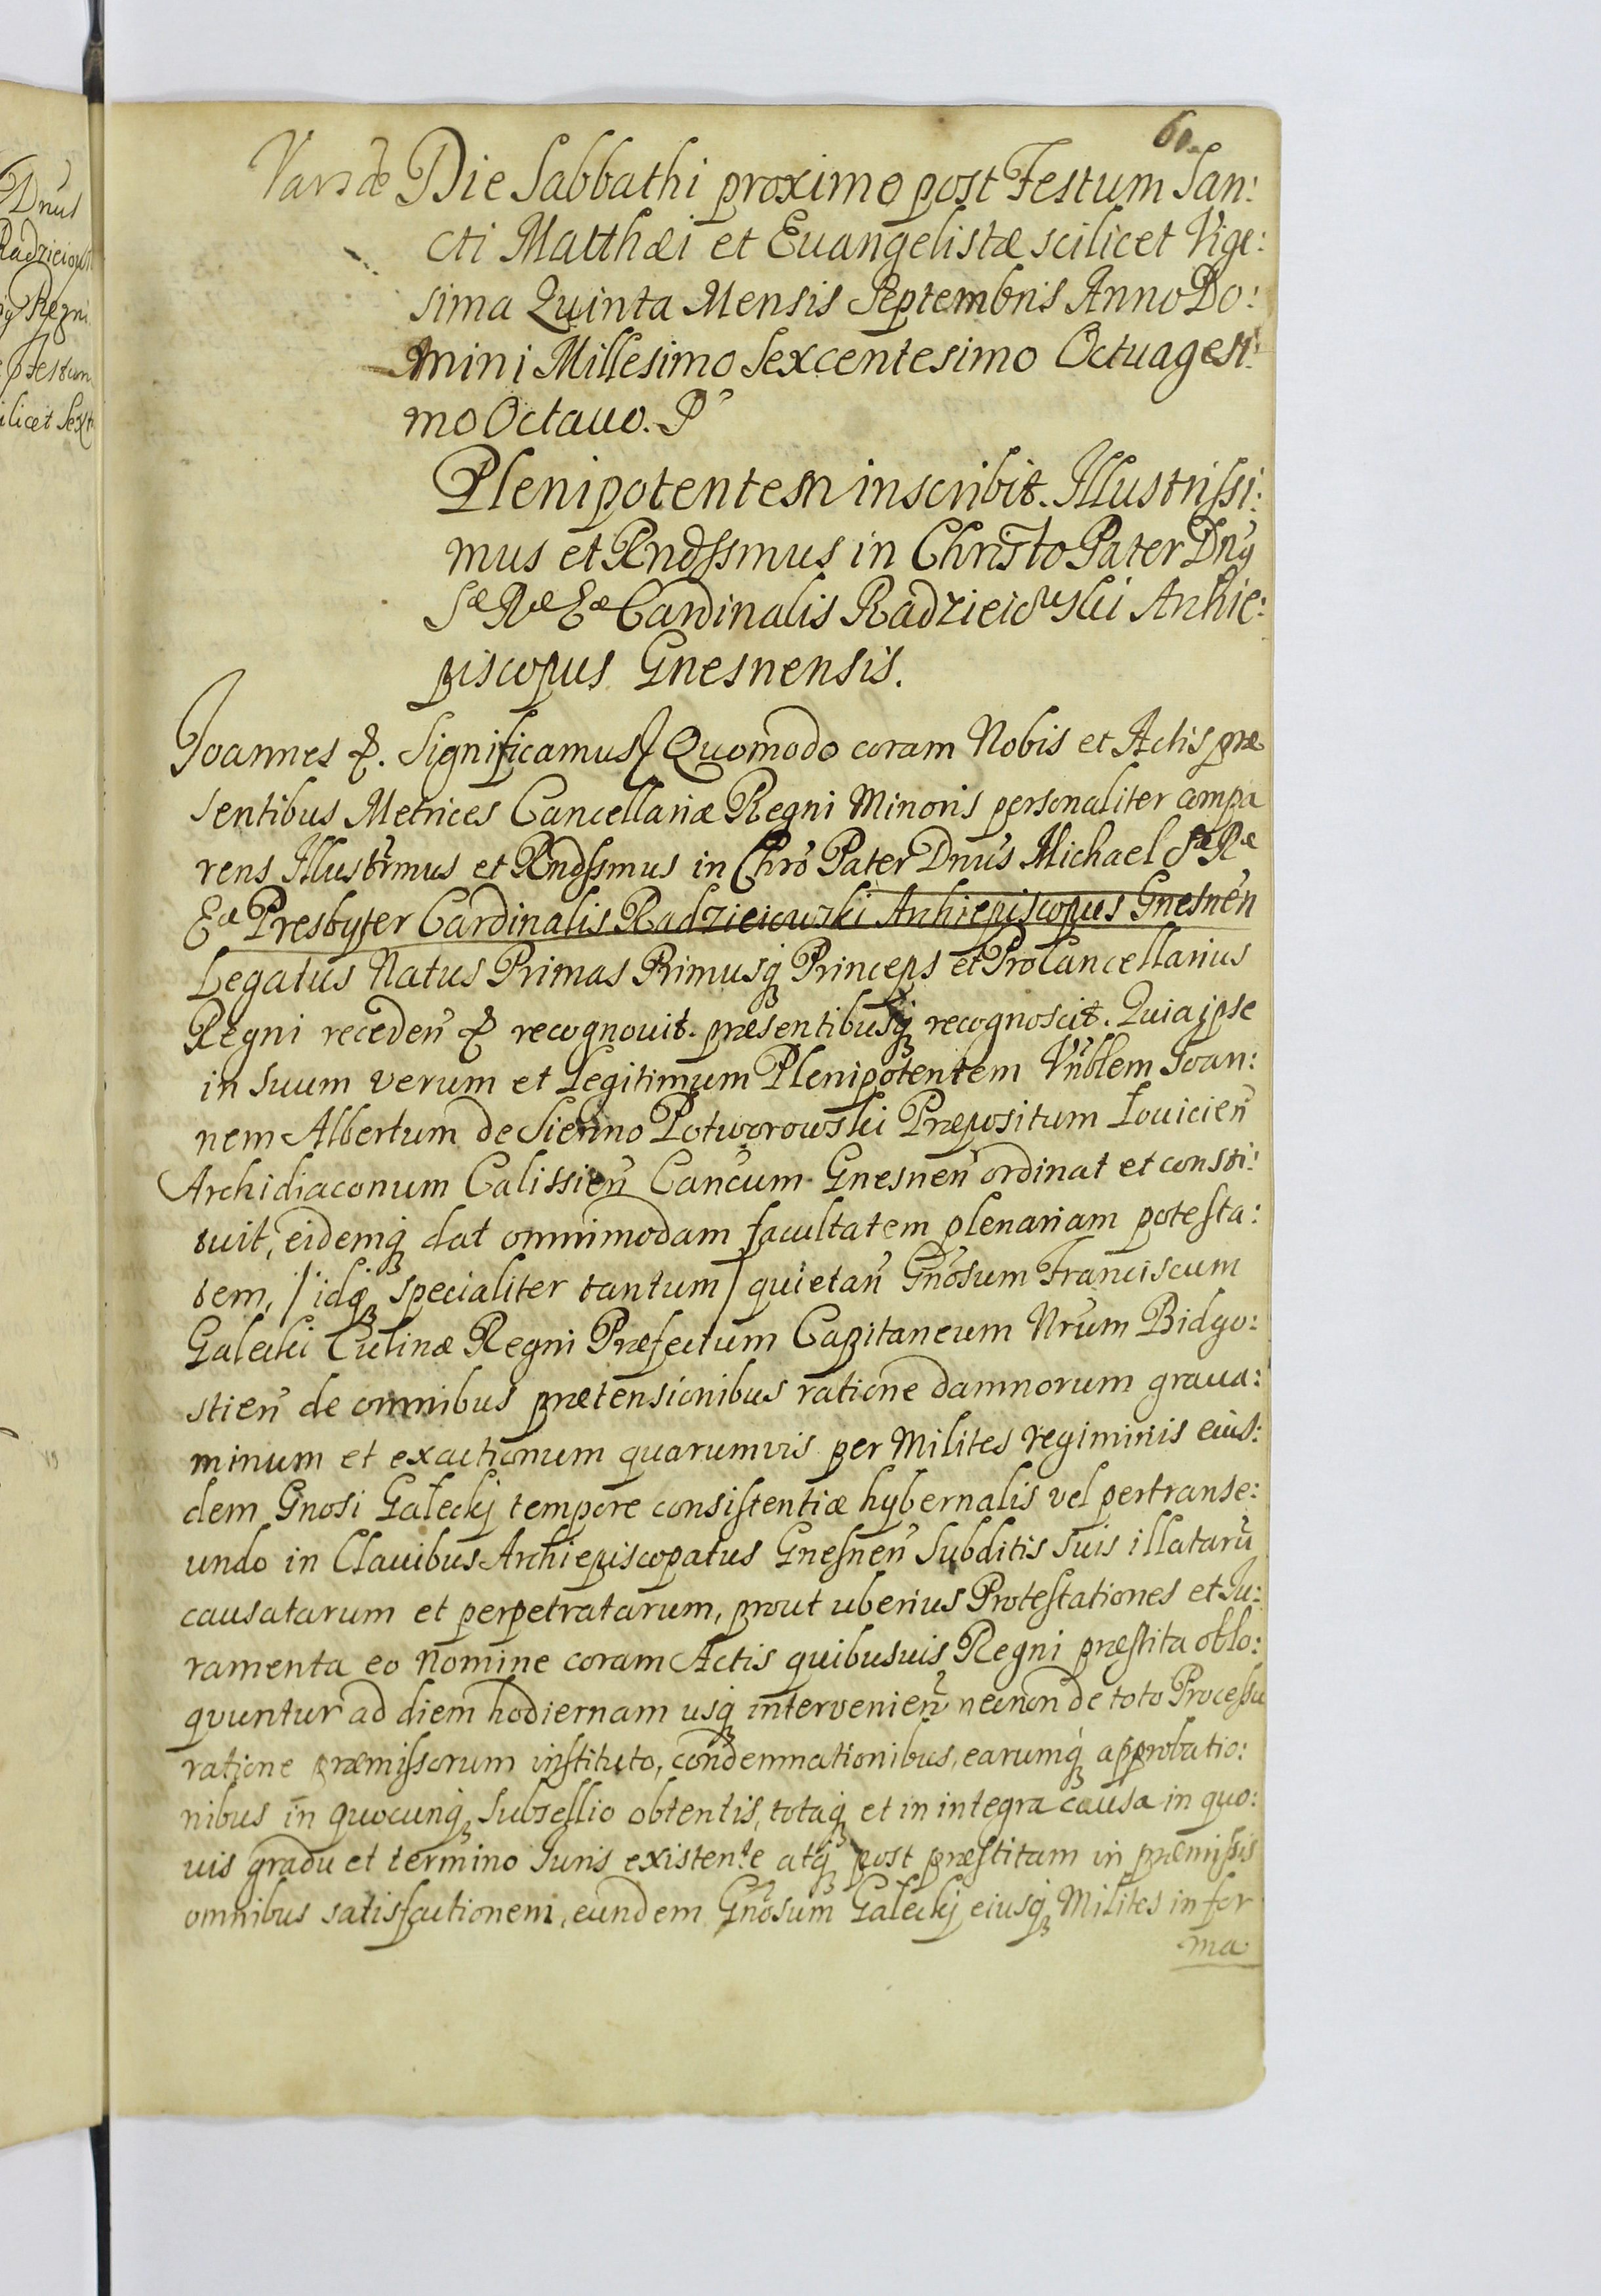 Dnus
Radzieiows
Regni
Festum
ilicet Sext
60
Varsæ Die Sabbathi proximo post Festum San:
cti Matthæi et Euangelistæ scilicet Vige:
sima Quinta Mensis Septembris Anno Do:
mini Millesimo Sexcentesimo Octuagesi:
mo Octauo.
Plenipotentem inscribit. Illustrissi:
mus et Rndssmus in Christo Pater Dnus
Sæ Ræ Eæ Cardinalis Radzieiowski Archie:
piscopus Gnesnensis.
Joannes &. Significamus/ Quomodo coram Nobis et Actis præ
sentibus Metrices Cancellariæ Regni Minoris personaliter compa
rens Illustrmus et Rndssmus in Chro Pater Dnus Michael Sæ Ræ
Eæ Presbyter Cardinalis Radzieiowski Archiepiscopus Gnesnen
Legatus Natus Primas Primusq Princeps et ProCancellarius
Regni receden & recognouit. præsentibusq recognoscit. Quia ipse
in suum verum et Legitimum Plenipotentem Vnblem Joan:
nem Albertum de Sienno Potworowski Præpositum Louicien
Archidiaconum Calissien Cancum Gnesnen ordinat et consti:
tuit, eidemq dat omnimodam facultatem plenariam potesta:
tem, /idq specialiter tantum/ quietan Gnosum Franciscum
Gałecki Culinæ Regni Præfectum Capitaneum Nrum Bidgo:
stien de omnibus prætensionibus ratione damnorum graua:
minum et exactionum quarumvis per Milites regiminis eius:
dem Gnosi Gałeckj tempore consistentiæ hybernalis vel pertranse:
undo in Clauibus Archiepiscopatus Gnesnen Subditis suis illataru
causatarum et perpetratarum, prout uberius Protestationes et Ju:
ramenta eo nomine coram Actis quibusuis Regni præstita oblo:
quuntur ad diem hodiernam usq intervenien necnon de toto Processu
ratione præmissorum instituto, condemnationibus, earumq approbatio:
nibus in quocunq Subsellio obtentis, totaq et in integra causa in quo:
uis gradu et termino Juris existente atq post præstitam in præmissis
omnibus satisfactionem, eundem Gnosum Gałeckj eiusq Milites in for
ma